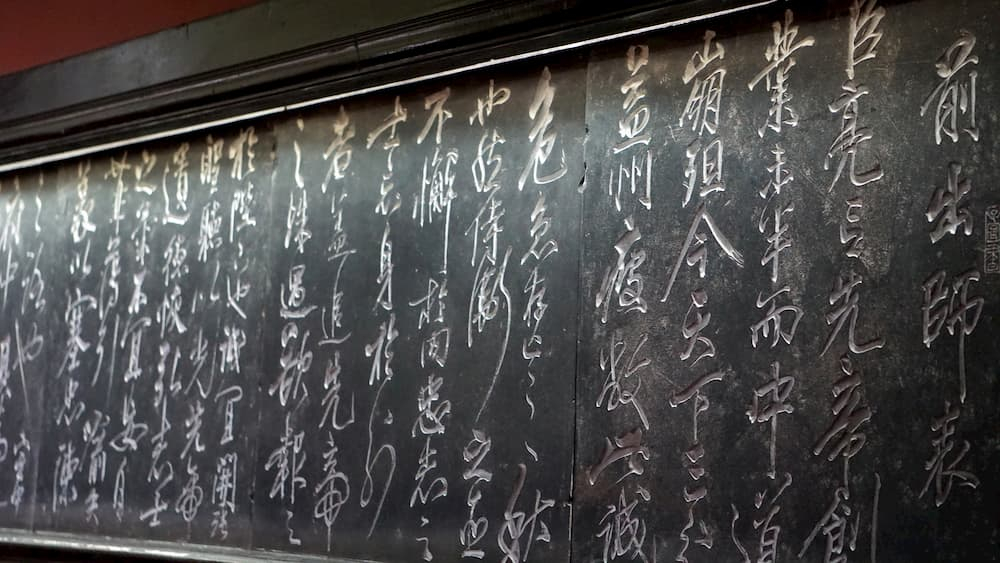 前出師表
臣亮言先帝創
業未半而中道
崩殂今天下三分
益州疲敝此誠
危急存亡之秋
也然侍衛之臣
不懈於内忠志之
士忘身於外
者蓋追先帝
之殊遇欲報之
於陛下也誠宜開張
聖聽以光先帝
遺德恢弘志士
之氣不宜妄自
菲薄引喻失
義以塞忠諫
之路也